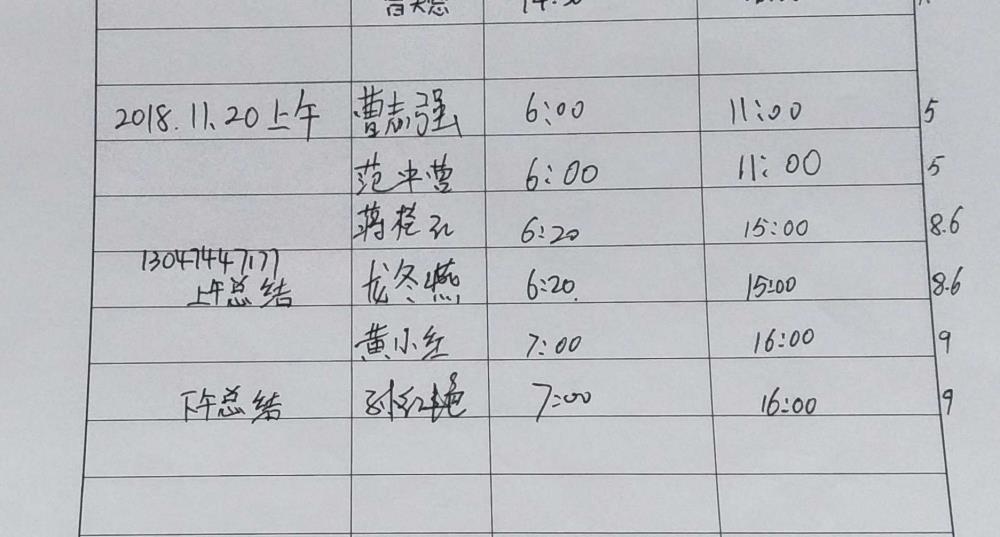 2018.11.20上午 曹志强 6:00 11:00 5
范中曹 6:00 11:00 5
蒋 6:20 15:00 8.6
13047447177
上午总结 龙冬燕 6:20 15:00 8.6
黄小红 7:00 16:00 9
下午总结 孙红艳 7:00 16:00 9